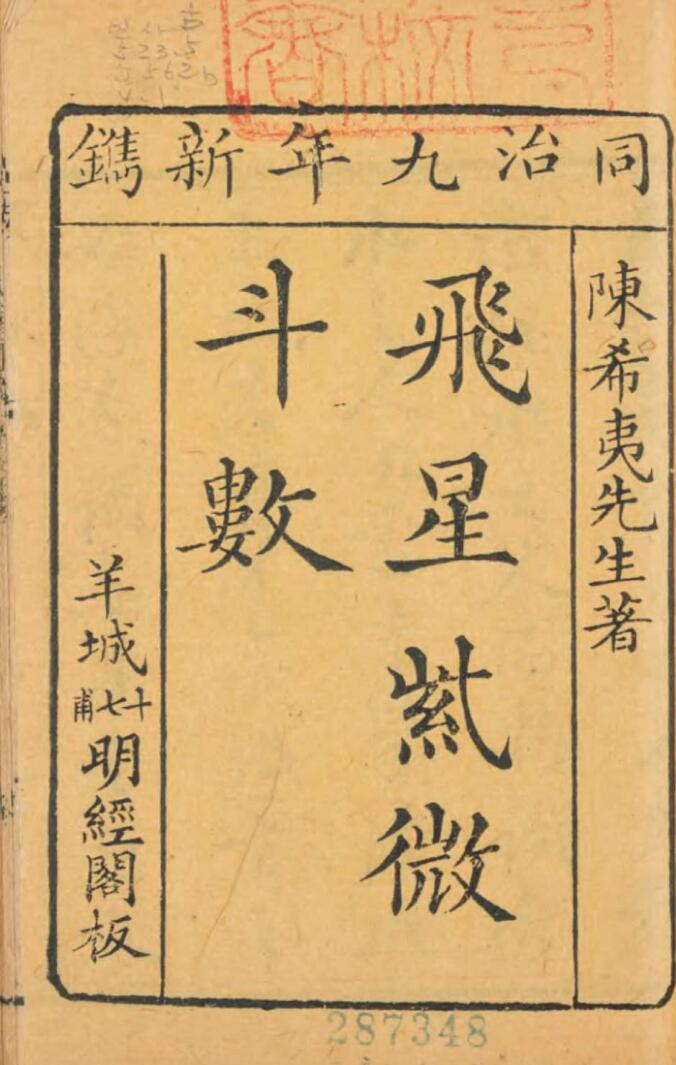 同治九年新鐫
陳希夷先生著
飛星紫微
斗數
羊城
十七甫
明經閣板
287348